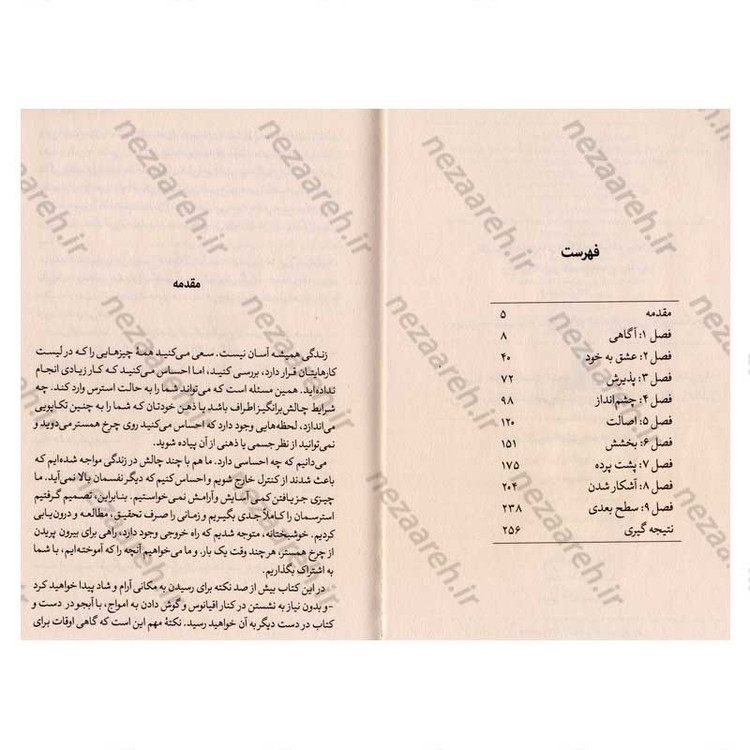 فهرست
مقدمه ۵
فصل ۱: آگاهی ۸
فصل ۲: عشق به خود ۴۰
فصل ۳: پذیرش ۷۲
فصل ۴: چشم‌انداز ۹۸
فصل ۵: اصالت ۱۲۰
فصل ۶: بخشش ۱۵۱
فصل ۷: پشت پرده ۱۷۵
فصل ۸: آشکار شدن ۲۰۴
فصل ۹: سطح بعدی ۲۳۸
نتیجه گیری ۲۵۶
مقدمه
زندگی همیشه آسان نیست. سعی می‌کنید همهٔ چیزهایی را که در لیست
کارهایتان قرار دارد، بررسی کنید، اما احساس می‌کنید که کار زیادی انجام
نداده‌اید. همین مسئله است که می‌تواند شما را به حالت استرس وارد کند. چه
شرایط چالش‌برانگیز اطراف باشد یا ذهن خودتان که شما را به چنین تکاپویی
می‌اندازد، لحظه‌هایی وجود دارد که احساس می‌کنید روی چرخ همستر می‌دوید و
نمی‌توانید از نظر جسمی یا ذهنی از آن پیاده شوید.
می‌دانیم که چه احساسی دارد. ما هم با چند چالش در زندگی مواجه شده‌ایم که
باعث شدند از کنترل خارج شویم و احساس کنیم که دیگر نفسمان بالا نمی‌آید. ما
چیزی جز یافتن کمی آسایش و آرامش نمی‌خواستیم. بنابراین، تصمیم گرفتیم
استرسمان را کاملاً جدی بگیریم و زمانی را صرف تحقیق، مطالعه و درون‌یابی
کردیم. خوشبختانه، متوجه شدیم که راه خروجی وجود دارد، راهی برای بیرون پریدن
از چرخ همستر، هر چند وقت یک بار. و ما می‌خواهیم آنچه را که آموخته‌ایم، با شما
به اشتراک بگذاریم.
در این کتاب بیش از صد نکته برای رسیدن به مکانی آرام و شاد پیدا خواهید کرد
- و بدون نیاز به نشستن در کنار اقیانوس و گوش دادن به امواج، با آبجو در دست و
کتاب در دست دیگر به آن خواهید رسید. نکتهٔ مهم این است که گاهی اوقات برای
nezaareh.ir